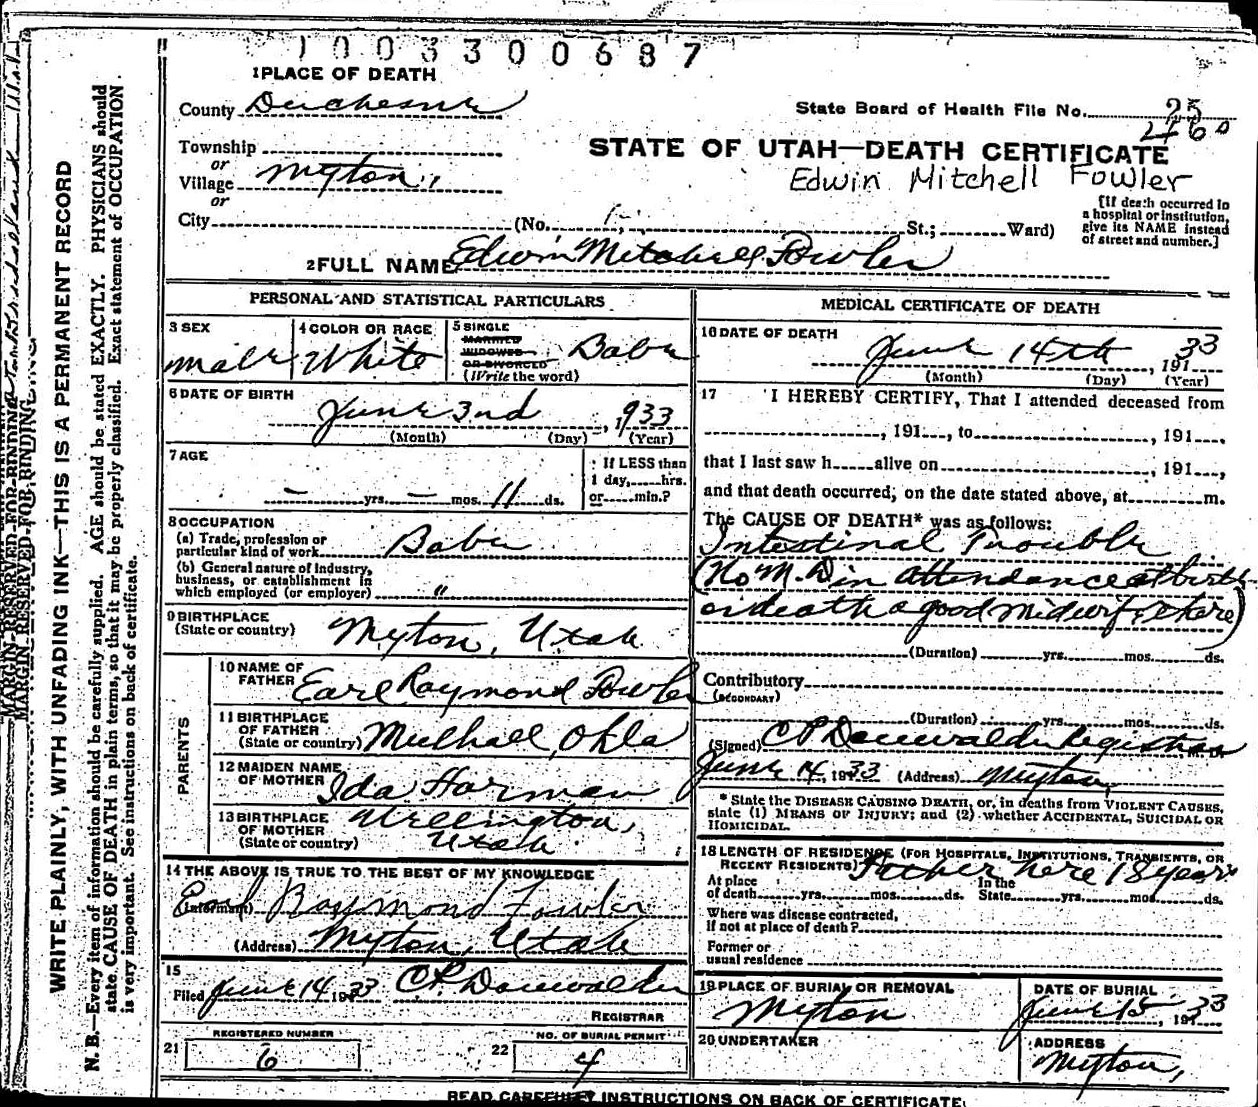 1003300687
1 PLACE OF DEATH
County Duchesne
State Board of Health File No. 25
460
Township
or
Village Myton,
or
City (No. St.; Ward)
STATE OF UTAH—DEATH CERTIFICATE
Edwin Mitchell Fowler
[If death occurred in
a hospital or institution,
give its NAME instead
of street and number.]
2 FULL NAME Edwin Mitchell Fowler
PERSONAL AND STATISTICAL PARTICULARS
3 SEX
Male
4 COLOR OR RACE
White
5 SINGLE
MARRIED
WIDOWED
OR DIVORCED
(Write the word)
Babe
6 DATE OF BIRTH
June 3rd, 1933
(Month) (Day) (Year)
7 AGE
— yrs. — mos. 11 ds.
If LESS than
1 day, hrs.
or min.?
8 OCCUPATION
(a) Trade, profession or
particular kind of work Babe
(b) General nature of industry,
business, or establishment in
which employed (or employer) "
9 BIRTHPLACE
(State or country) Myton, Utah
PARENTS
10 NAME OF
FATHER Earl Raymond Fowler
11 BIRTHPLACE
OF FATHER
(State or country) Mulhall, Okla
12 MAIDEN NAME
OF MOTHER Ida Harman
13 BIRTHPLACE
OF MOTHER
(State or country) Wellington,
Utah
14 THE ABOVE IS TRUE TO THE BEST OF MY KNOWLEDGE
(Informant) Earl Raymond Fowler
(Address) Myton, Utah
15
Filed June 14 1933 C P Dauwalder
REGISTRAR
REGISTERED NUMBER
21 6
NO. OF BURIAL PERMIT
22 4
MEDICAL CERTIFICATE OF DEATH
16 DATE OF DEATH
June 14th, 191 33
(Month) (Day) (Year)
17 I HEREBY CERTIFY, That I attended deceased from
, 191 , to , 191 ,
that I last saw h alive on , 191 ,
and that death occurred, on the date stated above, at m.
The CAUSE OF DEATH* was as follows:
Intestinal Trouble
(No M.D. in attendance at birth
or death a good midwife there)
(Duration) yrs. mos. ds.
Contributory
(SECONDARY)
(Duration) yrs. mos. ds.
(Signed) C P Dauwalder Registrar M. D.
June 14, 1933 (Address) Myton,
* State the DISEASE CAUSING DEATH, or, in deaths from VIOLENT CAUSES,
state (1) MEANS OF INJURY; and (2) whether ACCIDENTAL, SUICIDAL OR
HOMICIDAL.
18 LENGTH OF RESIDENCE (FOR HOSPITALS, INSTITUTIONS, TRANSIENTS, OR
RECENT RESIDENTS) Father here 18 years
At place
of death yrs. mos. ds.
In the
State yrs. mos. ds.
Where was disease contracted,
if not at place of death?
Former or
usual residence
19 PLACE OF BURIAL OR REMOVAL
Myton
DATE OF BURIAL
June 15, 1933
20 UNDERTAKER
ADDRESS
Myton,
READ CAREFULLY INSTRUCTIONS ON BACK OF CERTIFICATE.
MARGIN RESERVED FOR BINDING
WRITE PLAINLY, WITH UNFADING INK—THIS IS A PERMANENT RECORD
N. B.—Every item of information should be carefully supplied. AGE should be stated EXACTLY. PHYSICIANS should
state CAUSE OF DEATH in plain terms, so that it may be properly classified. Exact statement of OCCUPATION
is very important. See instructions on back of certificate.